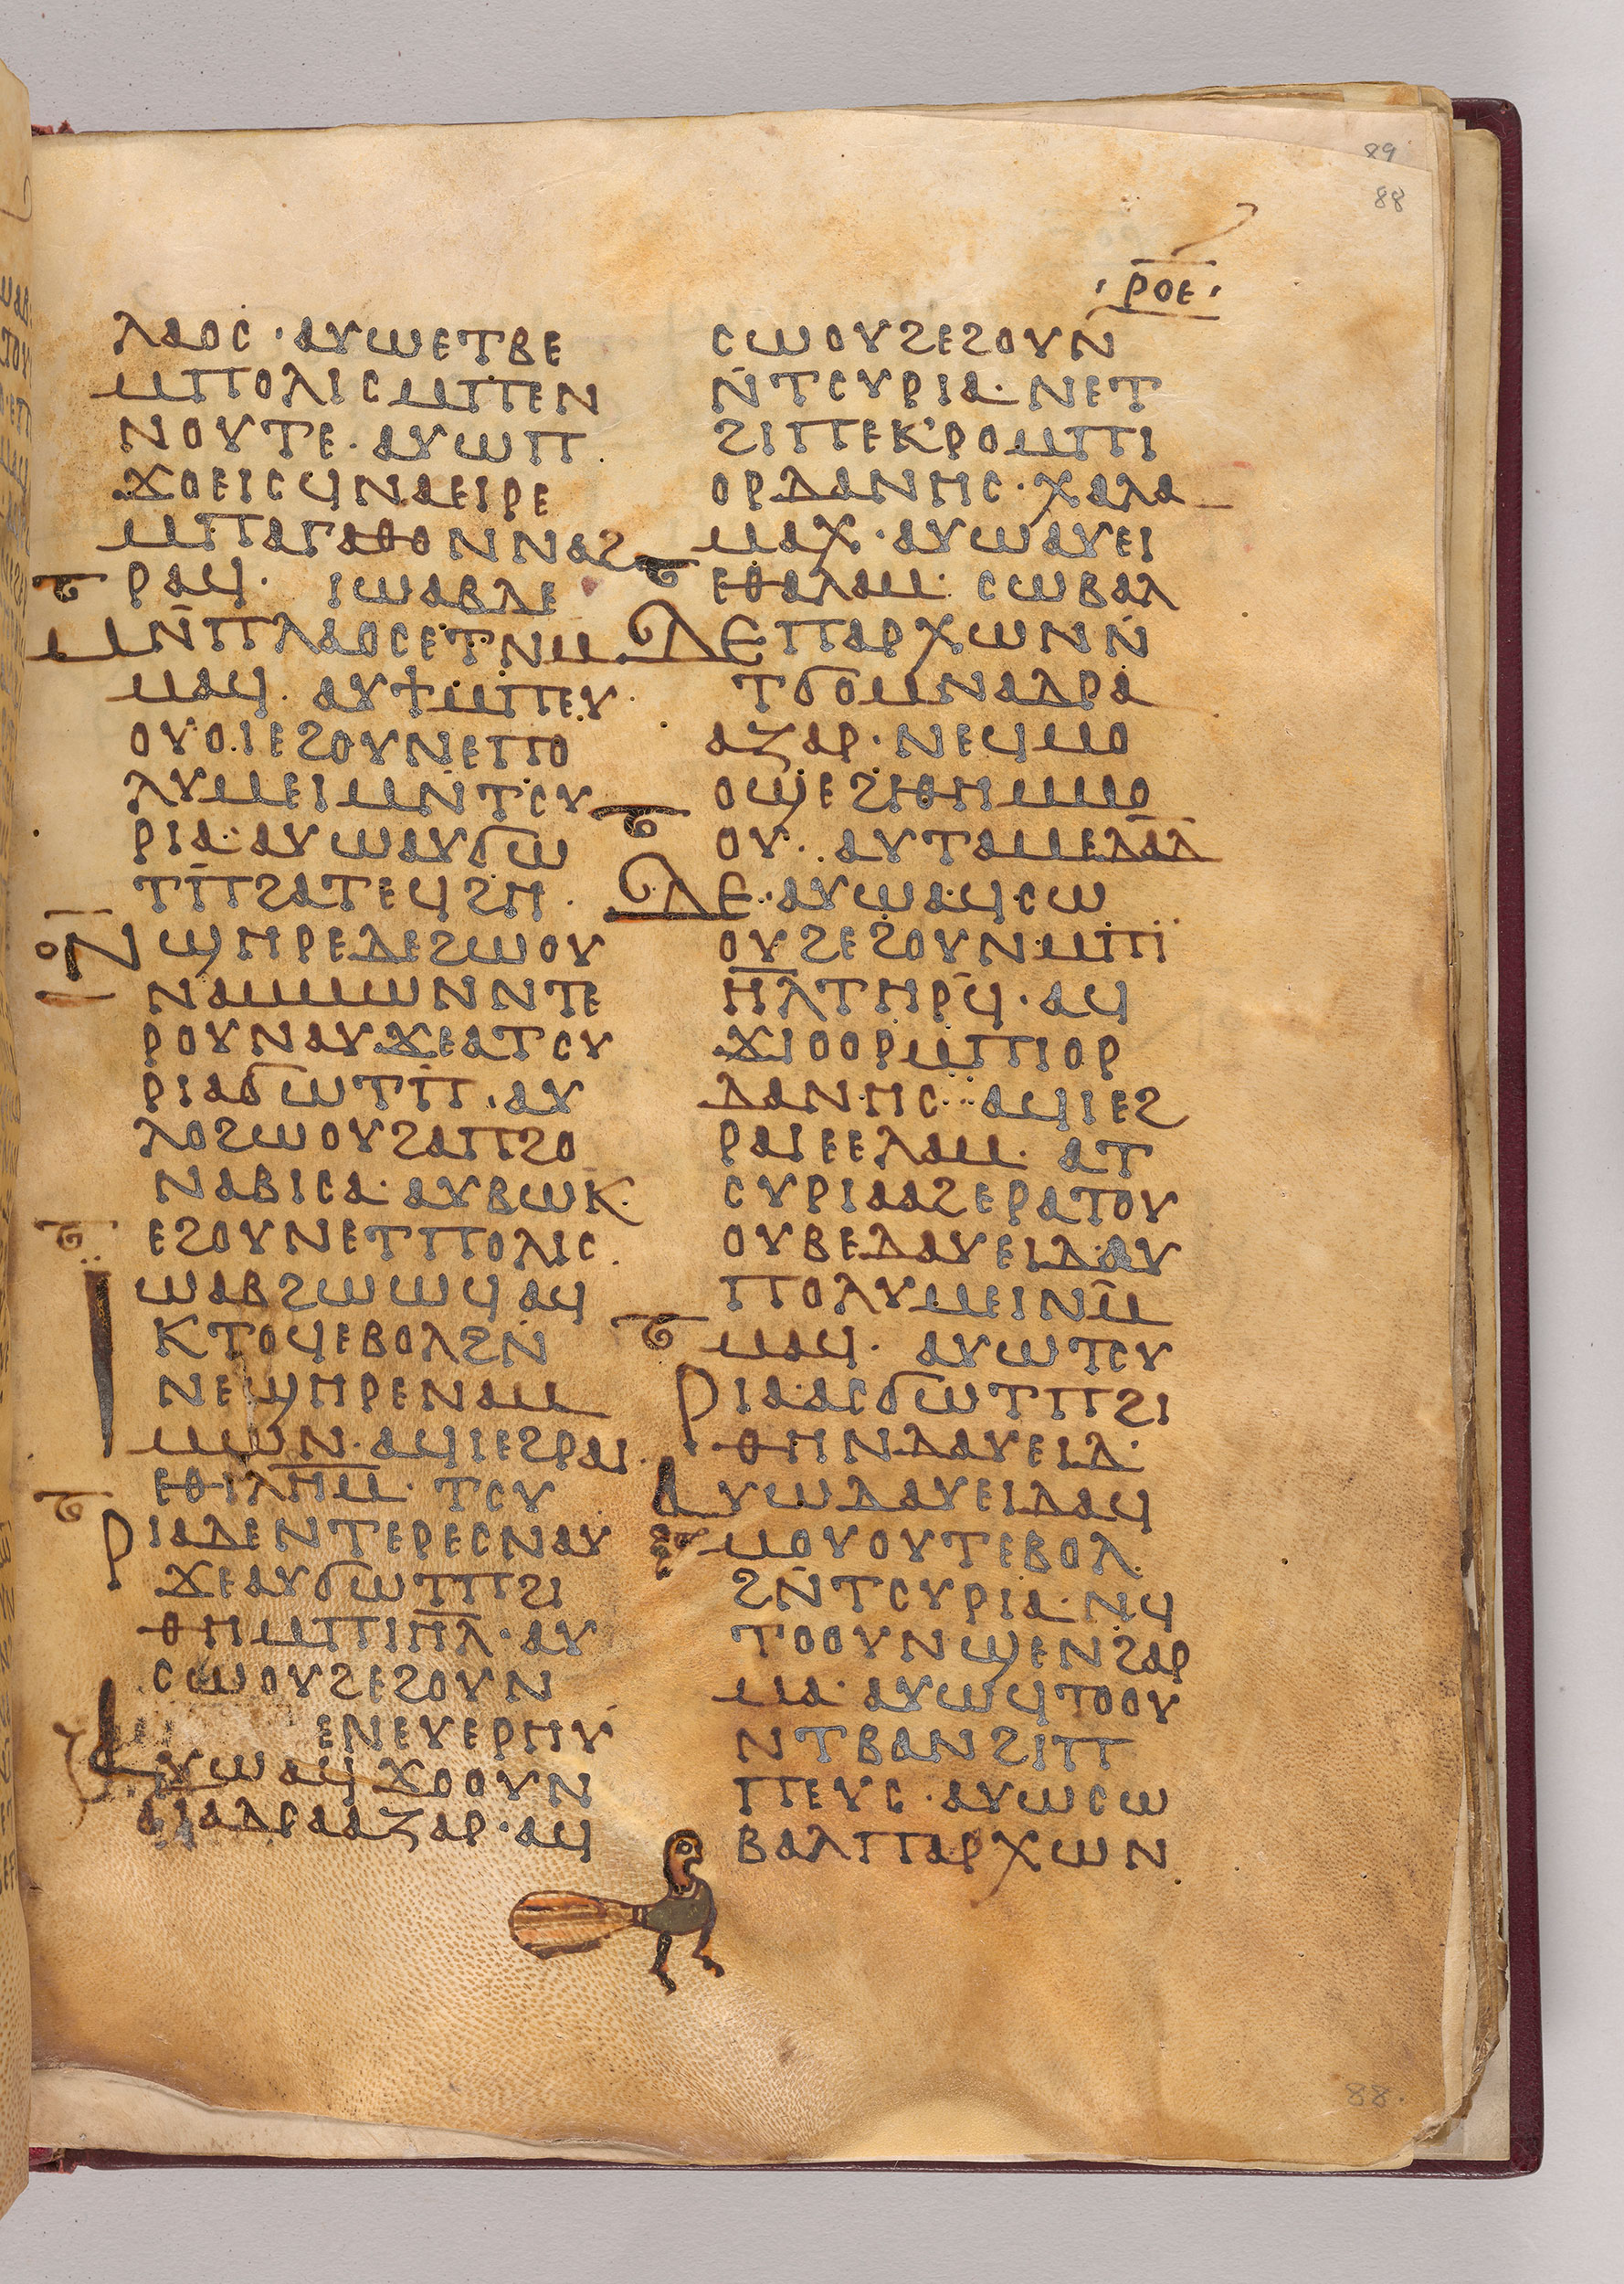 89
88
ⲣⲟⲉ
ⲗⲁⲟⲥ · ⲁⲩⲱⲉⲧⲃⲉ
ⲙⲡⲟⲗⲓⲥⲙⲡⲉⲛ
ⲛⲟⲩⲧⲉ · ⲁⲩⲱⲡ
ϫⲟⲉⲓⲥϥⲛⲁⲉⲓⲣⲉ
ⲙⲡⲁⲅⲁⲑⲟⲛⲛⲁϩ
ⲣⲁϥ · ⲓⲱⲁⲃⲇⲉ
ⲙⲛ̇ⲡⲗⲁⲟⲥⲉⲧⲛⲙ
ⲙⲁϥ · ⲁⲩϯⲙⲡⲉⲩ
ⲟⲩⲟⲓⲉϩⲟⲩⲛⲉⲡⲟ
ⲗⲩⲙⲉⲓⲙⲛ̇ⲧⲥⲩ
ⲣⲓⲁ · ⲁⲩⲱⲁⲩϭⲱ
ⲧⲡ̅ϩⲁⲧⲉϥϩⲏ ·
ⲛϣⲏⲣⲉⲇⲉϩⲱⲟⲩ
ⲛⲁⲙⲙⲱⲛⲛⲧⲉ
ⲣⲟⲩⲛⲁⲩϫⲉⲁⲧⲥⲩ
ⲣⲓⲁϭⲱⲧⲡ̅ · ⲁⲩ
ⲗⲟϩⲱⲟⲩϩⲁⲡϩⲟ
ⲛⲁⲃⲓⲥⲁ · ⲁⲩⲃⲱⲕ
ⲉϩⲟⲩⲛⲉⲧⲡⲟⲗⲓⲥ ·
ⲓⲱⲁⲃϩⲱⲱϥⲁϥ
ⲕⲧⲟϥⲉⲃⲟⲗϩⲛ̇
ⲛⲉⲓϣⲏⲣⲉⲛⲁⲙ
ⲙⲱⲛ · ⲁϥⲓⲉϩⲣⲁⲓ
ⲉⲑⲓⲗ̅ⲏ̅ⲙ̅ · ⲧⲥⲩ
ⲣⲓⲁⲇⲉⲛⲧⲉⲣⲉⲥⲛⲁⲩ
ϫⲉⲁⲩϭⲱⲧⲡϩⲓ
ⲑⲏⲙⲡⲓ̅ⲏ̅ⲗ̅ · ⲁⲩ
ⲥⲱⲟⲩϩⲉϩⲟⲩⲛ
ⲉⲛⲉⲩⲉⲣⲏⲩ
ⲁⲩⲱⲁϥϫⲟⲟⲩⲛ
ϭⲓⲁⲇⲣⲁⲁⲍⲁⲣ · ⲁϥ
ⲥⲱⲟⲩϩⲉϩⲟⲩⲛ
ⲛ̇ⲧⲥⲩⲣⲓⲁ · ⲛⲉⲧ
ϩⲓⲡⲉⲕⲣⲟⲙⲡⲓ
ⲟⲣⲇⲁⲛⲏⲥ · ⲭⲁⲗⲁ
ⲙⲁⲭ · ⲁⲩⲱⲁⲩⲉⲓ
ⲉⲑⲁⲗⲁⲙ · ⲥⲱⲃⲁⲗ
ⲇⲉⲡⲁⲣⲭⲱⲛⲛ̇
ⲧϭⲟⲙⲛⲁⲇⲣⲁ
ⲁⲍⲁⲣ · ⲛⲉϥⲙⲟ
ⲟϣⲉϩⲓⲑⲏⲙⲙⲟ
ⲟⲩ · ⲁⲩⲧⲁⲙⲉⲇ̅ⲁ̅ⲇ̅
ⲇⲉ · ⲁⲩⲱⲁϥⲥⲱ
ⲟⲩϩⲉϩⲟⲩⲛⲙⲡⲓ̈
ⲏ̅ⲗ̅ⲧⲏⲣϥ · ⲁϥ
ϫⲓⲟⲟⲣⲙⲡⲓⲟⲣ
ⲇⲁⲛⲏⲥ · ⲁϥⲓⲉϩ
ⲣⲁⲓⲉⲉⲗⲁⲙ · ⲁⲧ
ⲥⲩⲣⲓⲁⲁϩⲉⲣⲁⲧⲟⲩ
ⲟⲩⲃⲉⲇⲁⲩⲉⲓⲇ · ⲁⲩ
ⲡⲟⲗⲩⲙⲉⲓⲛⲙ̅
ⲙⲁϥ · ⲁⲩⲱⲧⲥⲩ
ⲣⲓⲁ · ⲁⲥϭⲱⲧⲡϩⲓ
ⲑⲏⲛⲇⲁⲩⲉⲓⲇ ·
ⲁⲩⲱⲇⲁⲩⲉⲓⲇⲁϥ
ⲙⲟⲩⲟⲩⲧⲉⲃⲟⲗ
ϩⲛ̇ⲧⲥⲩⲣⲓⲁ · ⲛϥ
ⲧⲟⲟⲩⲛϣⲉⲛϩⲁⲣ
ⲙⲁ · ⲁⲩⲱϥⲧⲟⲟⲩ
ⲛⲧⲃⲁⲛϩⲓⲡ
ⲡⲉⲩⲥ · ⲁⲩⲱⲥⲱ
ⲃⲁⲗⲡⲁⲣⲭⲱⲛ
88.